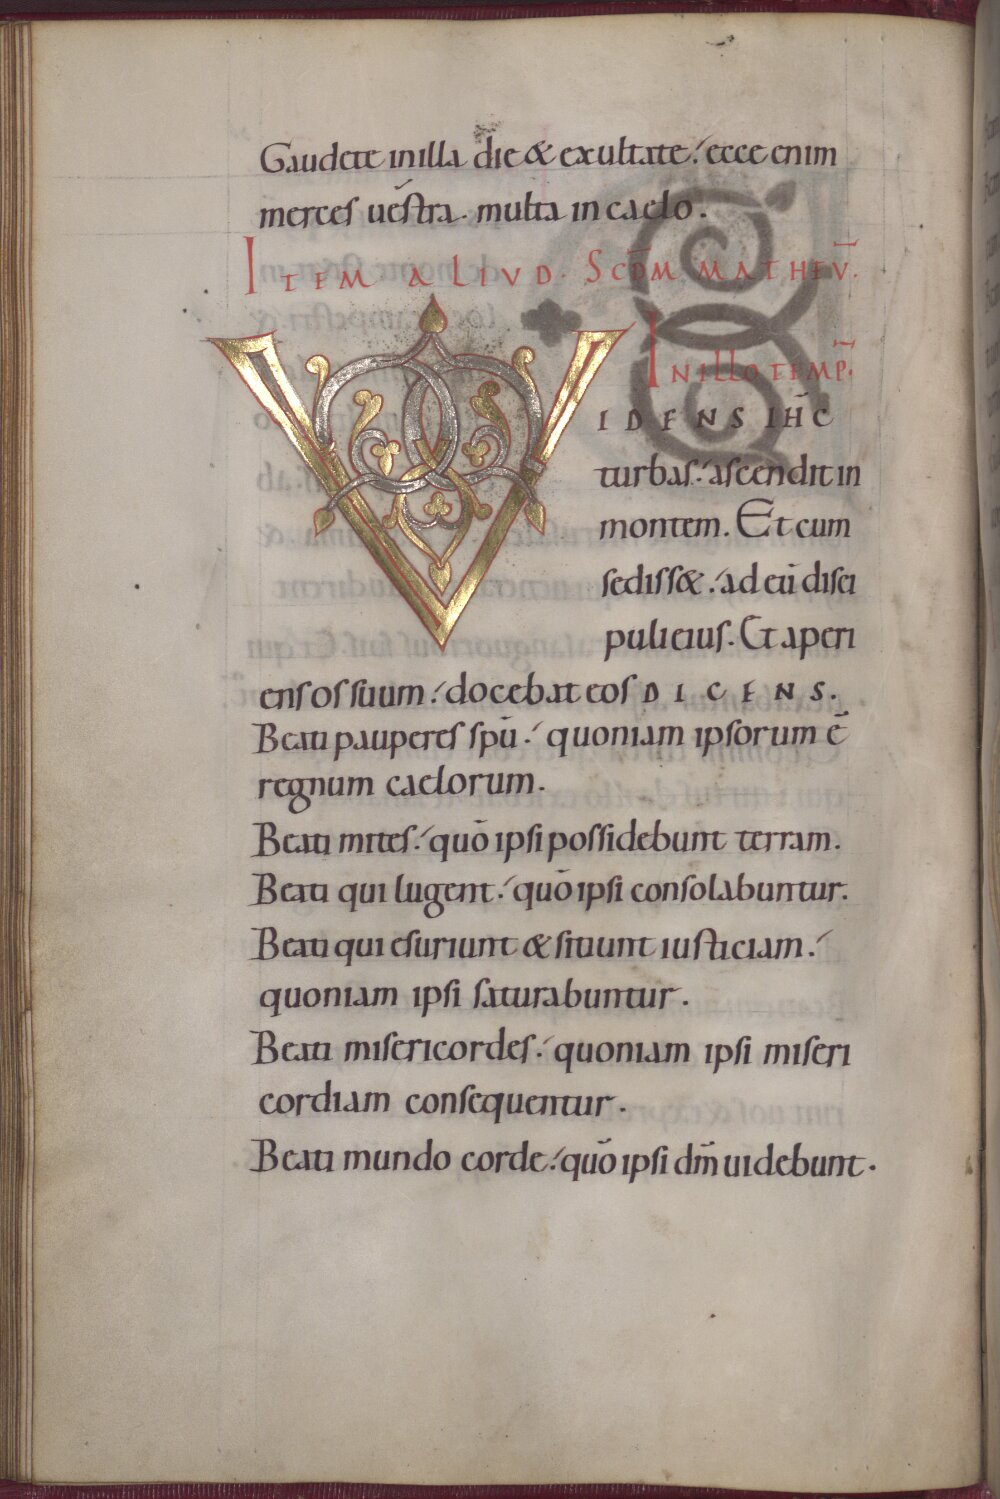 Gaudete in illa die & exultate. ecce enim
merces uestra. multa in caelo.
ITEM ALIVD. SCDM MATHEV̄.
IN ILLO TEMP̄.
VIDENS IHC̄
turbas. ascendit in
montem. Et cum
sediss&. ad eū disci
puli eius. Et aperi
ens os suum. docebat eos DICENS.
Beati pauperes spū. quoniam ipsorum ē
regnum caelorum.
Beati mites. quō ipsi possidebunt terram.
Beati qui lugent. quō ipsi consolabuntur.
Beati qui esuriunt & sitiunt iusticiam.
quoniam ipsi saturabuntur.
Beati misericordes. quoniam ipsi miseri
cordiam consequentur.
Beati mundo corde. quō ipsi dm̄ uidebunt.